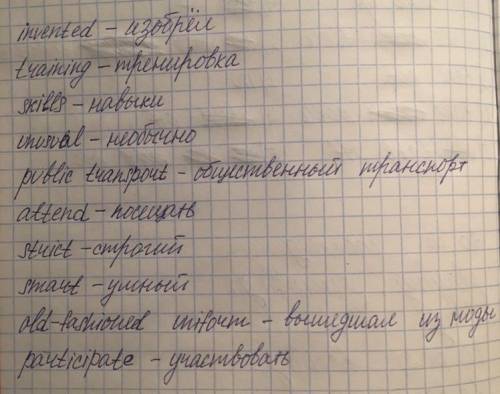 invented – изобрёл
training – тренировка
skills – навыки
unusual – необычно
public transport – общественный транспорт
attend – посещать
strict – строгий
smart – умный
old-fashioned uniform – вышедшая из моды
participate – участвовать